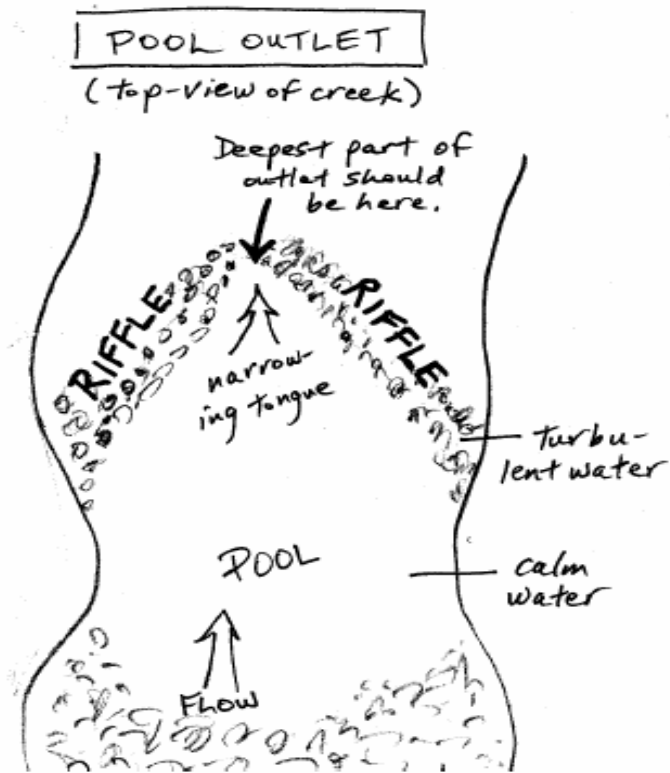 POOL OUTLET
(top-view of creek)
Deepest part of
outlet should
be here.
RIFFLE
RIFFLE
narrow-
ing tongue
turbu-
lent water
POOL
calm
water
FLOW